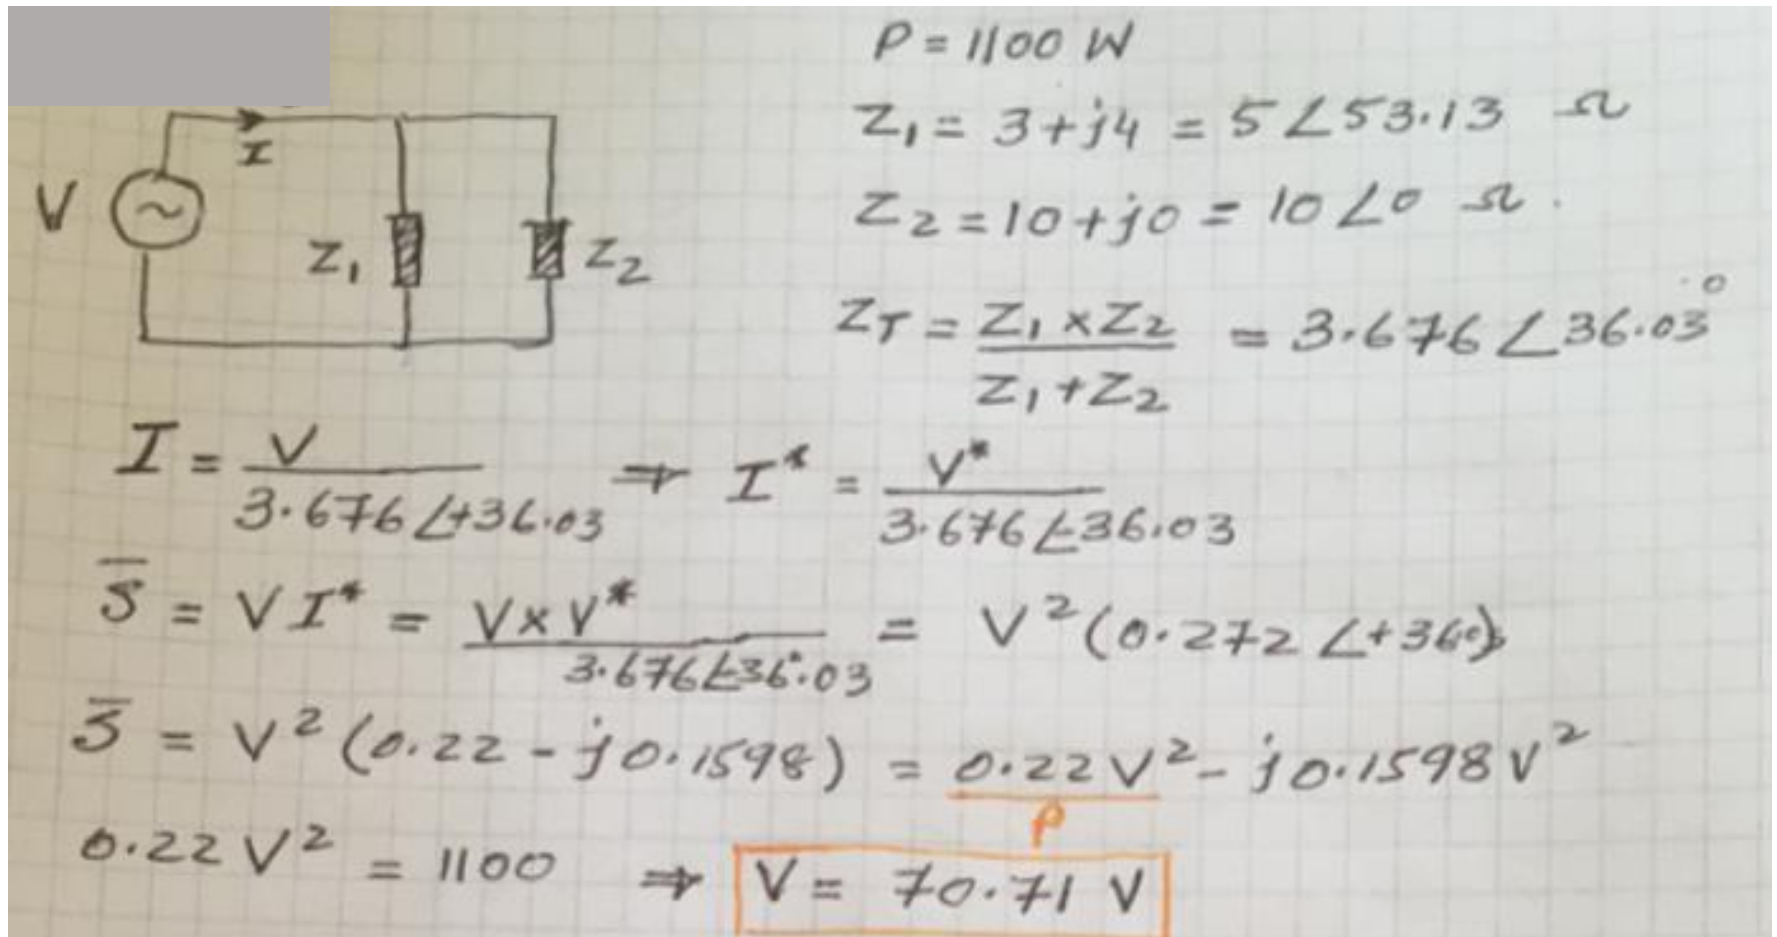 P = 1100 W
I
V
Z₁
Z₂
Z₁ = 3 + j4 = 5 ∠53.13 Ω
Z₂ = 10 + j0 = 10 ∠0 Ω.
Z_T = Z₁ × Z₂ / Z₁ + Z₂ = 3.676 ∠36.03°
I = V / 3.676 ∠+36.03 ⇒ I* = V* / 3.676 ∠-36.03
S̅ = V I* = V × V* / 3.676 ∠-36.03 = V² (0.272 ∠+36.03)
S̅ = V² (0.22 - j0.1598) = 0.22 V² - j0.1598 V²
P
0.22 V² = 1100 ⇒ V = 70.71 V